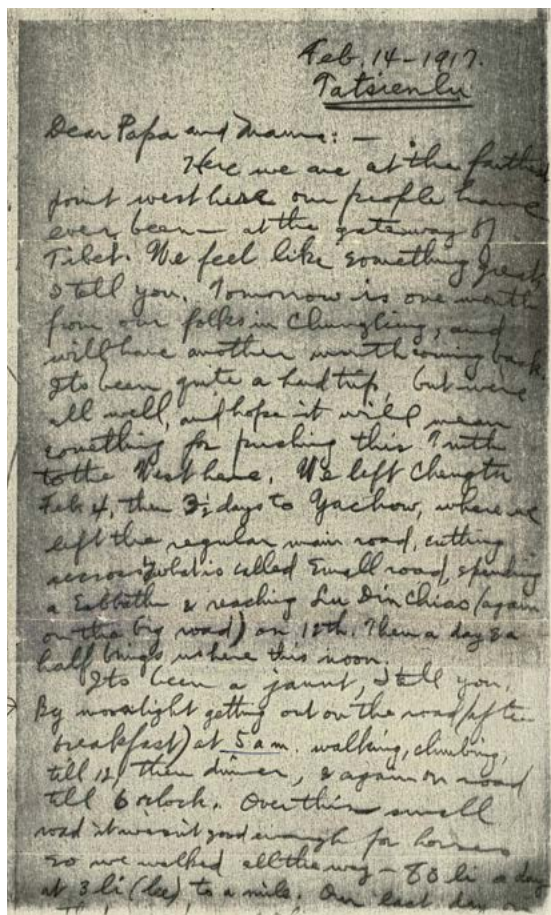 Feb. 14 – 1917.
Tatsienlu
Dear Papa and Mama: —
Here we are at the farthest
point west here our people have
ever been — at the gateway of
Tibet. We feel like something great
I tell you. Tomorrow is one month
from our folks in Chungking, and
will have another month coming back.
Its been quite a hard trip, but we're
all well, and hope it will mean
something for pushing this Truth
to the West here. We left Chengtu
Feb. 4, then 3½ days to Yachow, where we
left the regular main road, cutting
across what is called Small road, spending
a Sabbath & reaching Lu Din Chiao (again
on the big road) on 12th. Then a day & a
half brings us here this noon.
Its been a jaunt, I tell you.
By moonlight getting out on the road (after
breakfast) at 5 a m. walking, climbing,
till 12, then dinner, & again on road
till 6 oclock. Over this small
road it wasn't good enough for horses
so we walked all the way – 80 li a day
at 3 li (lee) to a mile. Our last day on